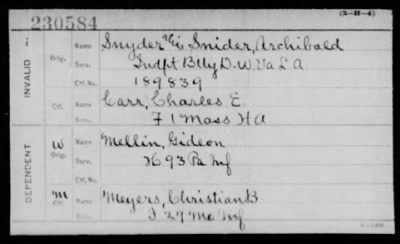 230584 (3-H-4)
INVALID
Orig. Name Snyder or Snider, Archibald
Serv. Indpt Btty D. W. Va L A
Ctf. No. 189839
Ctf. Name Carr, Charles E.
Serv. F 1 Mass H A
DEPENDENT
W Orig. Name Mellin, Gideon
Serv. K 93 Pa Inf
Ctf. No.
M Ctf. Name Meyers, Christian B
Serv. I 27 Mo Inf